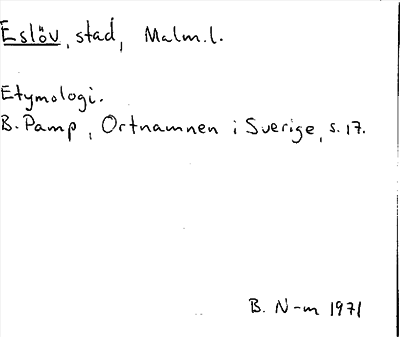 Eslöv, stad, Malm.l.
Etymologi.
B. Pamp, Ortnamnen i Sverige, s. 17.
B. N-m 1971